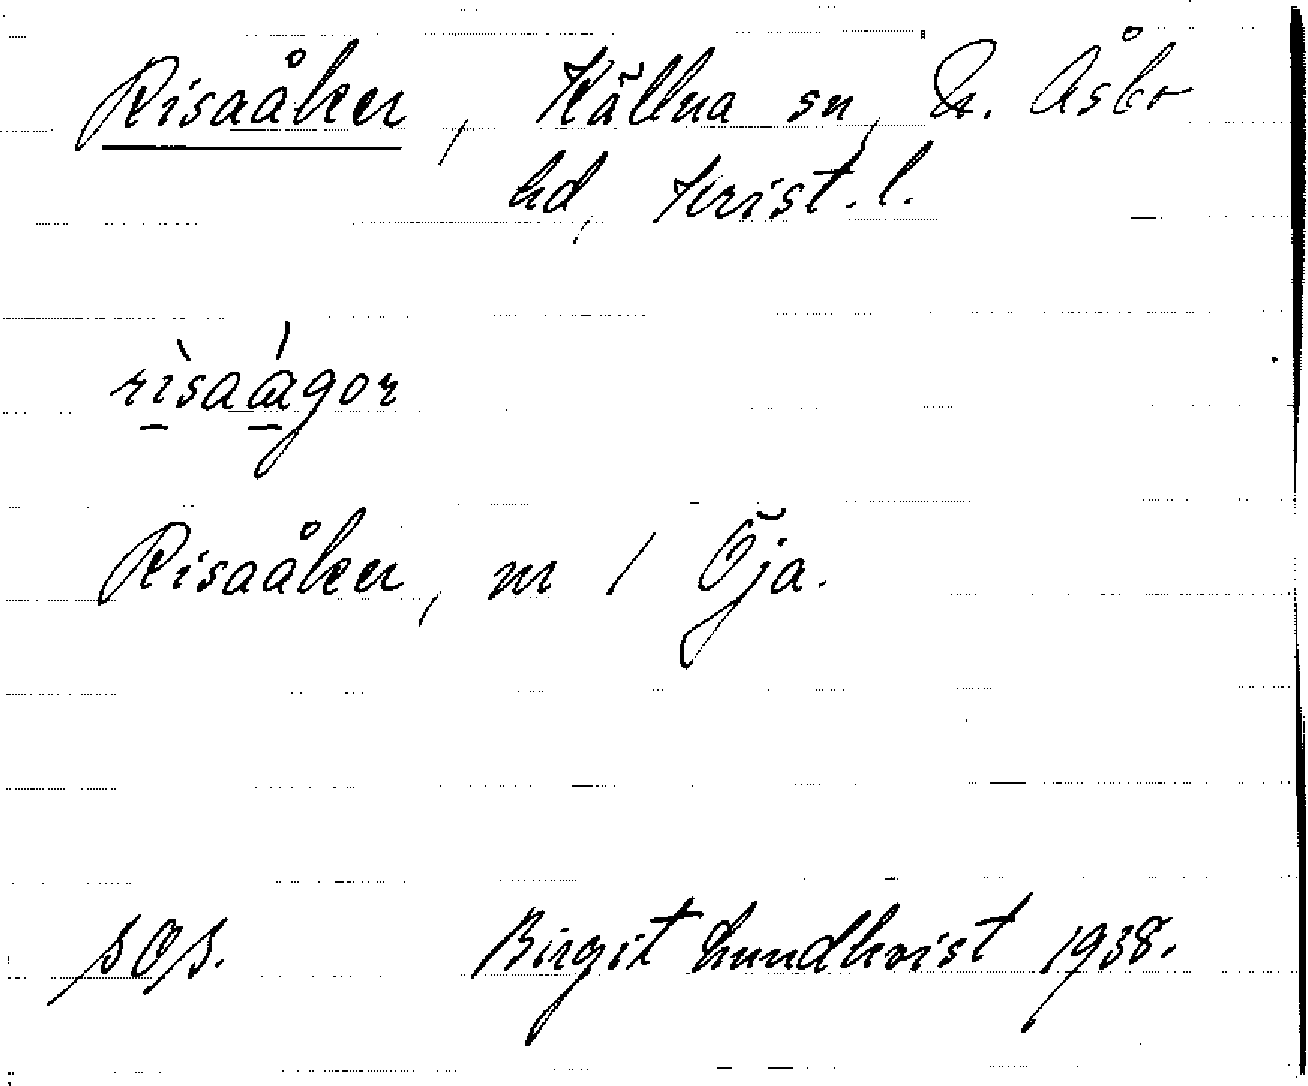 Risaåker, Källna sn, N. Åsbo
hd, Krist. l.
rìsaágor
Risaåker, m / Öja.
SOS. Birgit Lundkvist 1938.